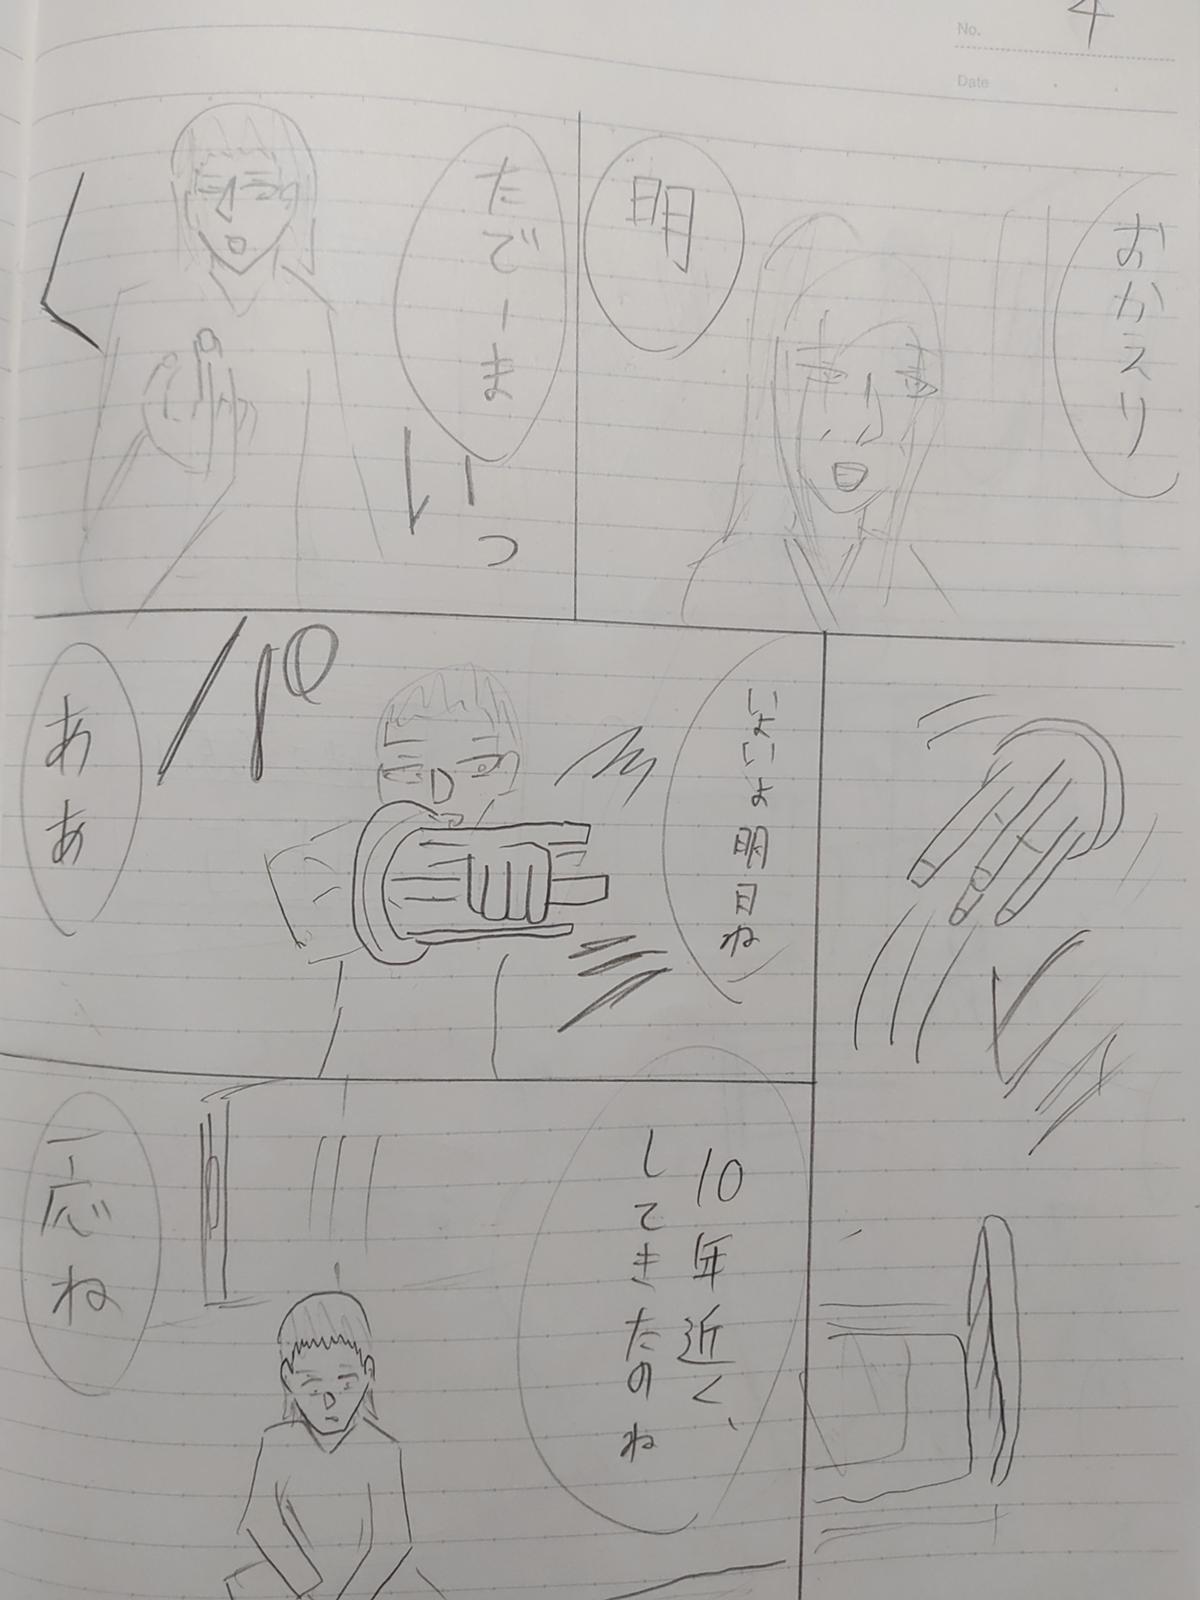 No. 4
Date
おかえり
明
たでーま
くいっ
いよいよ明日ね
パ
ああ
10年近く、
してきたのね
一応ね